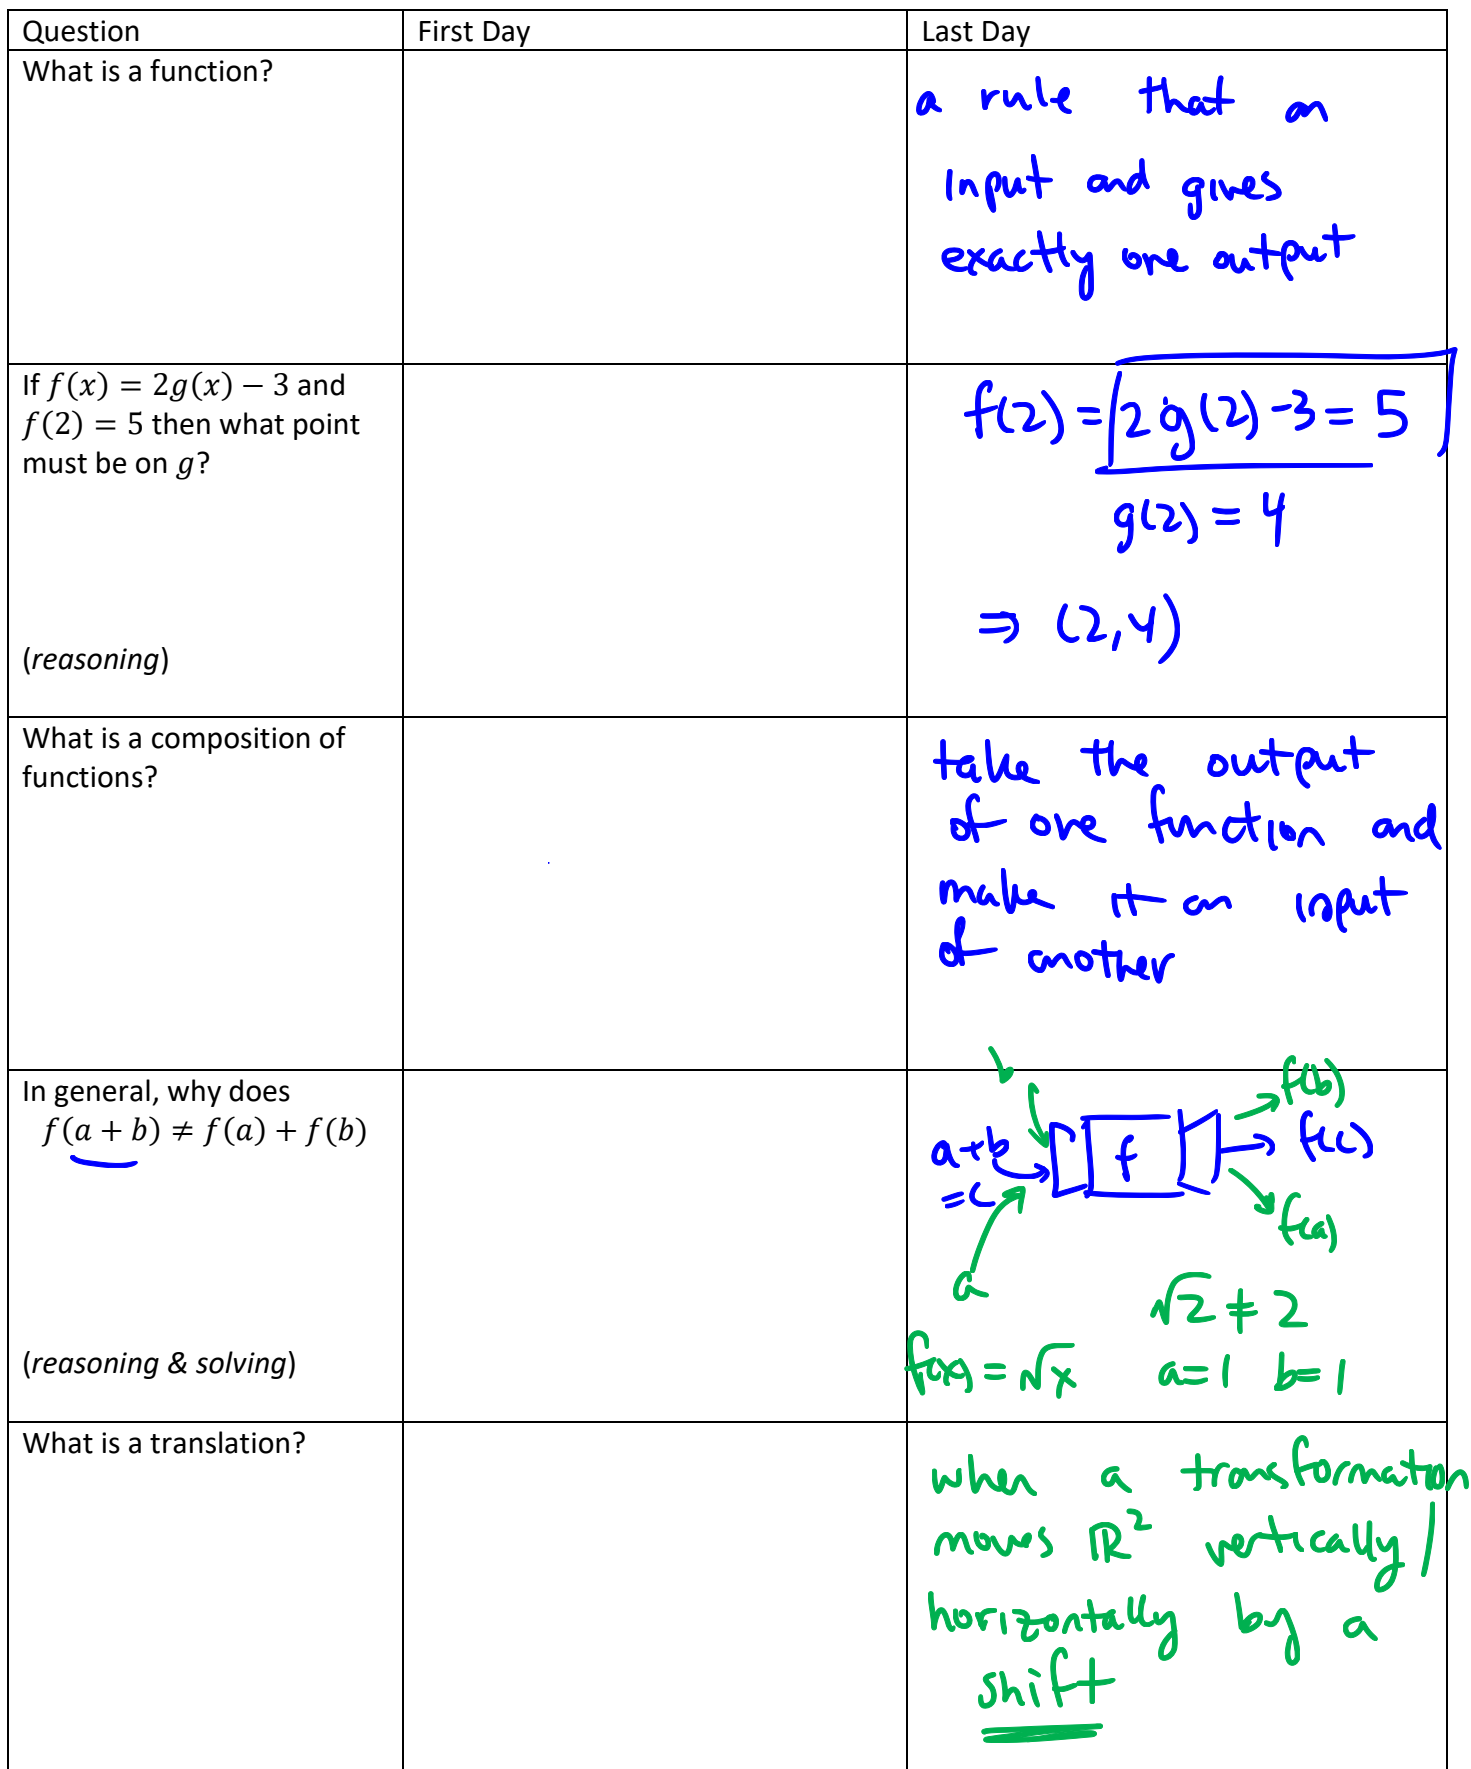 Question First Day Last Day
What is a function?
a rule that an
input and gives
exactly one output
If f(x) = 2g(x) − 3 and
f(2) = 5 then what point
must be on g?
(reasoning)
f(2) = 2g(2) -3 = 5
g(2) = 4
⇒ (2,4)
What is a composition of
functions?
take the output
of one function and
make it an input
of another
In general, why does
f(a + b) ≠ f(a) + f(b)
(reasoning & solving)
b f(b)
a+b f f(c)
=c
f(a)
a
√2 ≠ 2
f(x) = √x a=1 b=1
What is a translation?
when a transformation
moves ℝ² vertically /
horizontally by a
shift